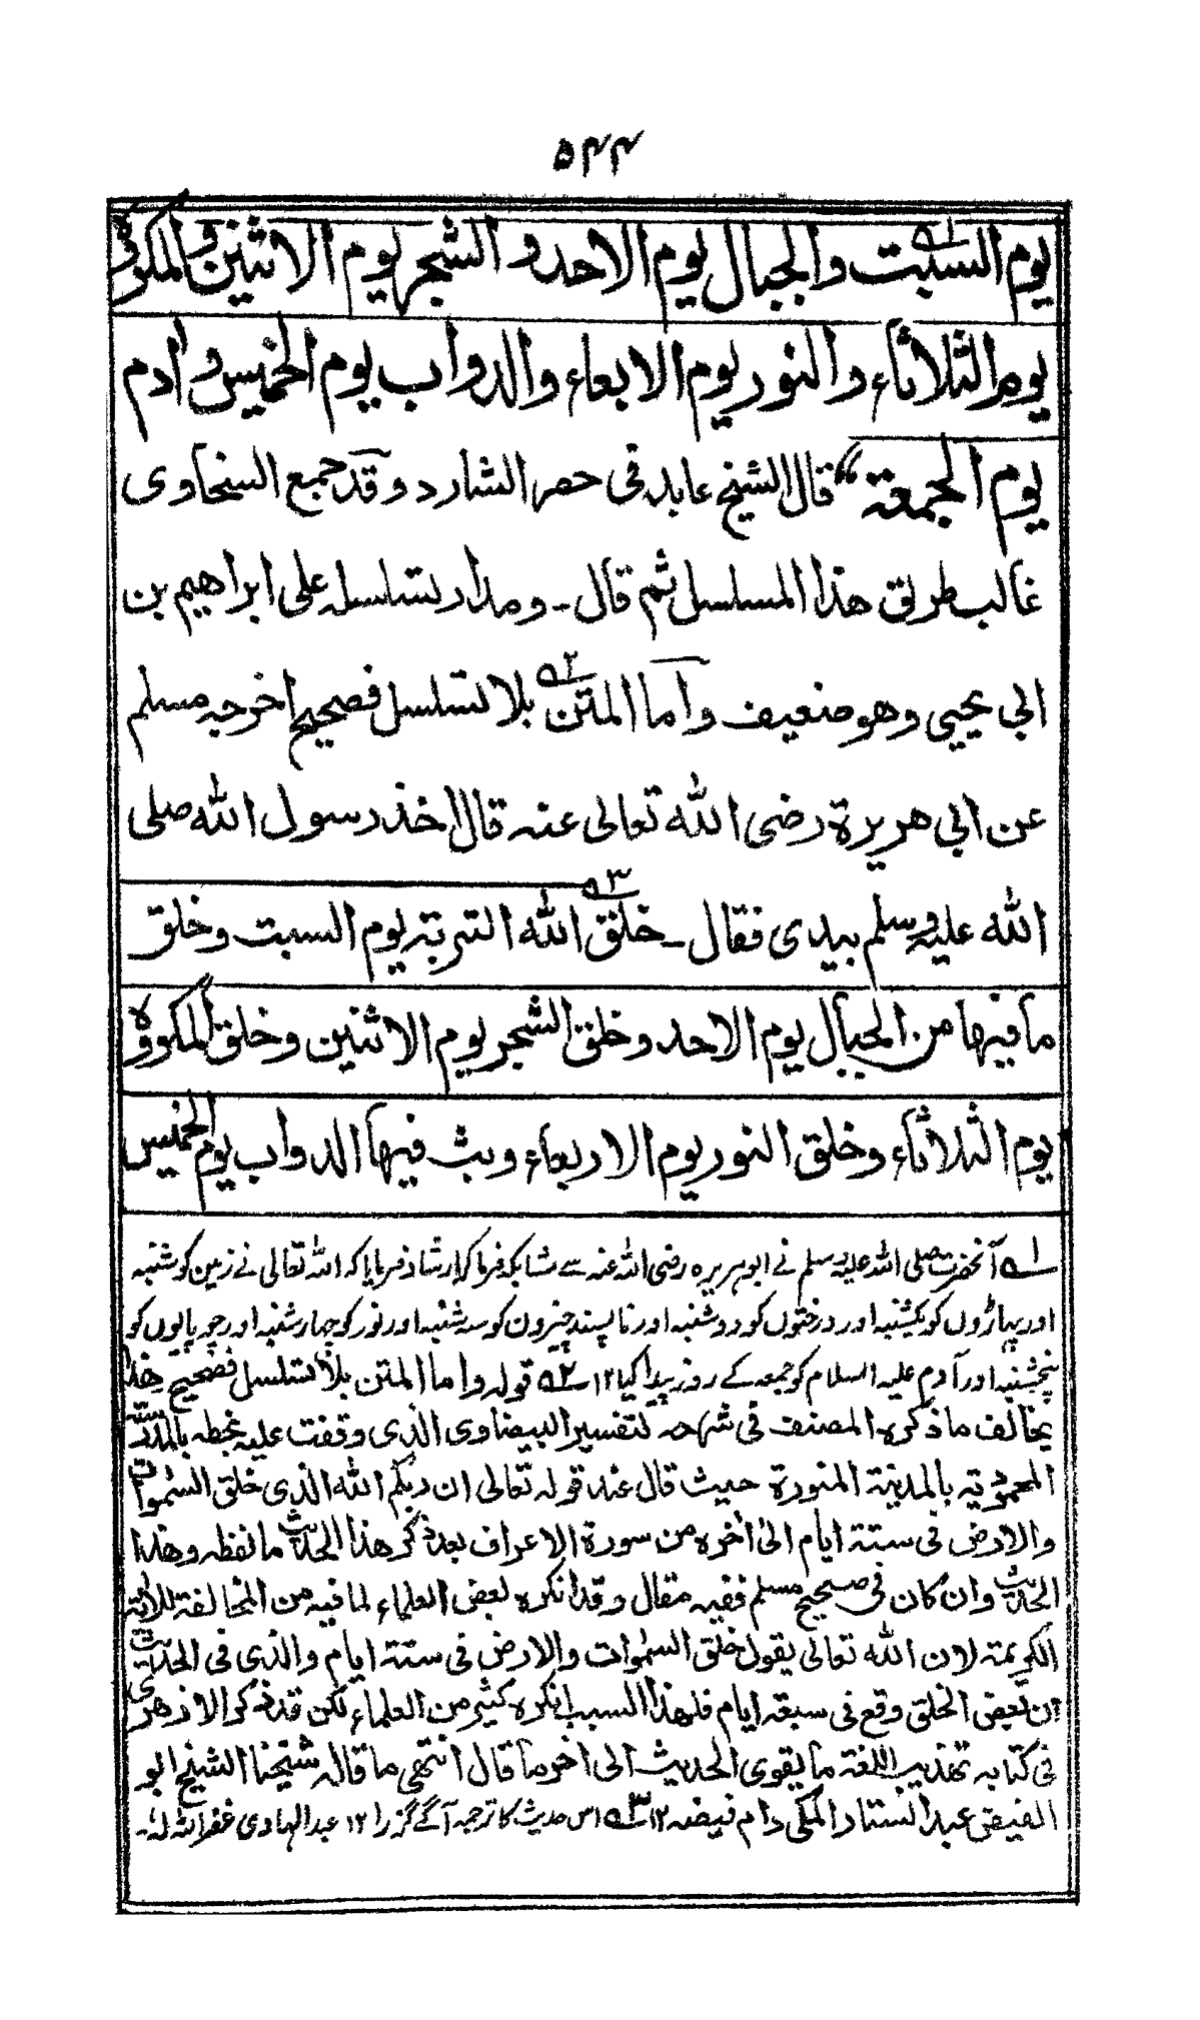 ۵۴۴
يوم السبت والجبال يوم الاحد و الشجر يوم الاثنين والمكروه
يوم الثلاثاء والنور يوم الابعاء والدواب يوم الخميس و ادم
يوم الجمعة" قال الشيخ عابد فى حصر الشارد وقد جمع السخاوى
غالب طريق هذا المسلسل ثم قال ۔ ومدار تسلسله على ابراهيم بن
ابي يحيى وهو ضعيف واما المتن ۲؎ بلا تسلسل فصحيح اخرجه مسلم
عن ابي هريرة رضى الله تعالى عنه قال اخذ رسول الله صلى
الله عليه وسلم بيدى فقال ۔ ۳؎ خلق الله التربة يوم السبت وخلق
ما فيها من الجبال يوم الاحد وخلق الشجر يوم الاثنين وخلق المكروه
يوم الثلاثاء وخلق النور يوم الاربعاء وبث فيها الدواب يوم الخميس
۱؎ آنحضرت صلی اللہ علیہ وسلم نے ابوہریرہ رضی اللہ عنہ سے تشابک فرما کر ارشاد فرمایا کہ اللہ تعالی نے زمین کو شنبہ
اور پہاڑوں کو یکشنبہ اور درختوں کو دوشنبہ اور ناپسند چیزوں کو سہ شنبہ اور نور کو چہار شنبہ اور چوپایوں کو
پنجشنبہ اور آدم علیہ السلام کو جمعہ کے روز پیدا کیا ۱۲ ۲؎ قوله واما المتن بلا تسلسل فصحيح هذا
يخالف ما ذكره المصنف فى شرحه لتفسير البيضاوى الذى وقفت عليه بخطه بالمدرسة
المحمودية بالمدينة المنورة حيث قال عند قوله تعالى ان ربكم الله الذى خلق السموات
والارض فى ستة ايام الى اخره من سورة الاعراف بعد ذكر هذا الحديث ما لفظه وهذا
الحديث وان كان فى صحيح مسلم ففيه مقال وقد انكره بعض العلماء لما فيه من المخالفة للاية
الكريمة لان الله تعالى يقول خلق السموات والارض فى ستة ايام والذى فى الحديث
ان بعض الخلق وقع فى سبعة ايام فلهذا السبب انكره كثير من العلماء لكن قد ذكر الازهرى
فى كتابه تهذيب اللغة ما يقوى الحديث الى اخر ما قال انتهى ما قاله شيخنا الشيخ ابو
الفيض عبد الستار المكى دام فيضه ۱۲ ۳؎ اس حدیث کا ترجمہ آگے گزرا ۱۲ عبد الہادی غفر اللہ لہ۔